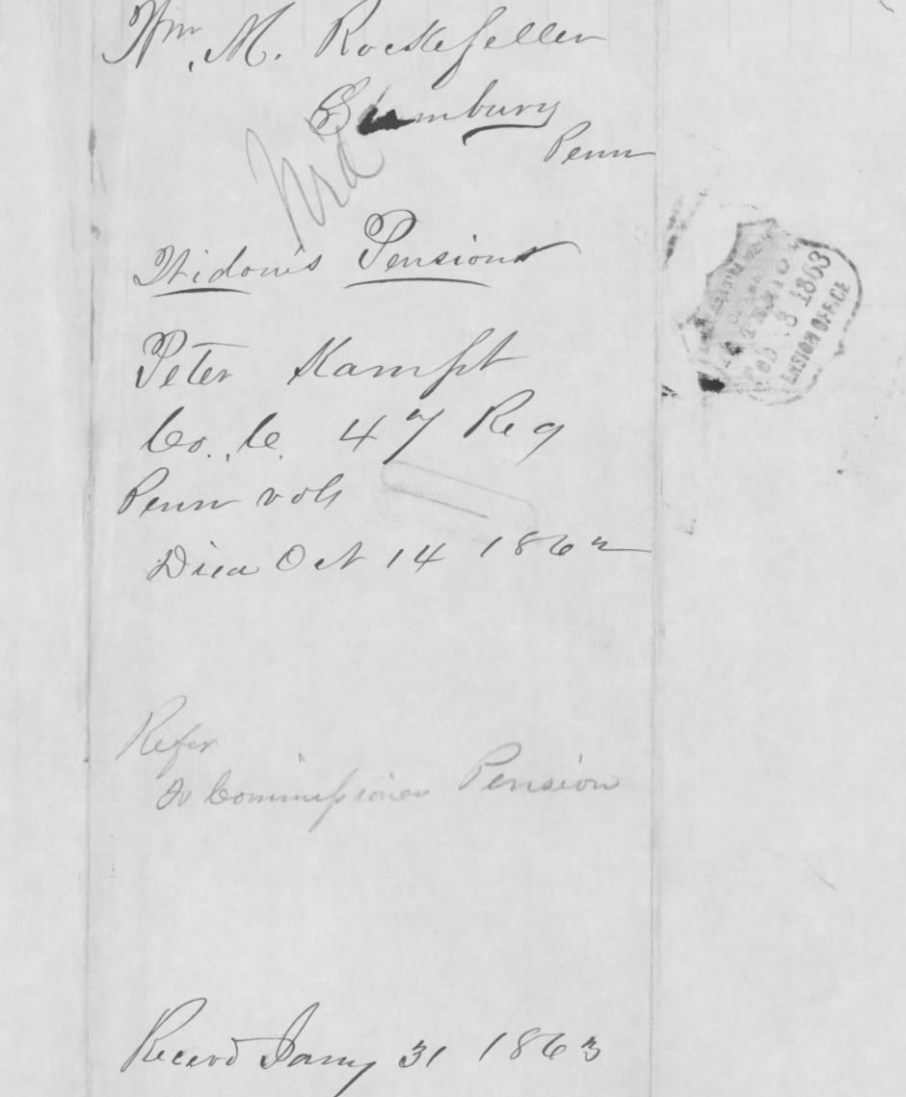 Wm. M. Rockefeller
Sumbury
Penn
Widow's Pension
Peter Kampht
Co. C. 47 Reg
Penn vols
Died Oct 14 1862
Feb 3 1863
PENSION OFFICE
Refer
to Commissioner Pension
Recevd Jany 31 1863